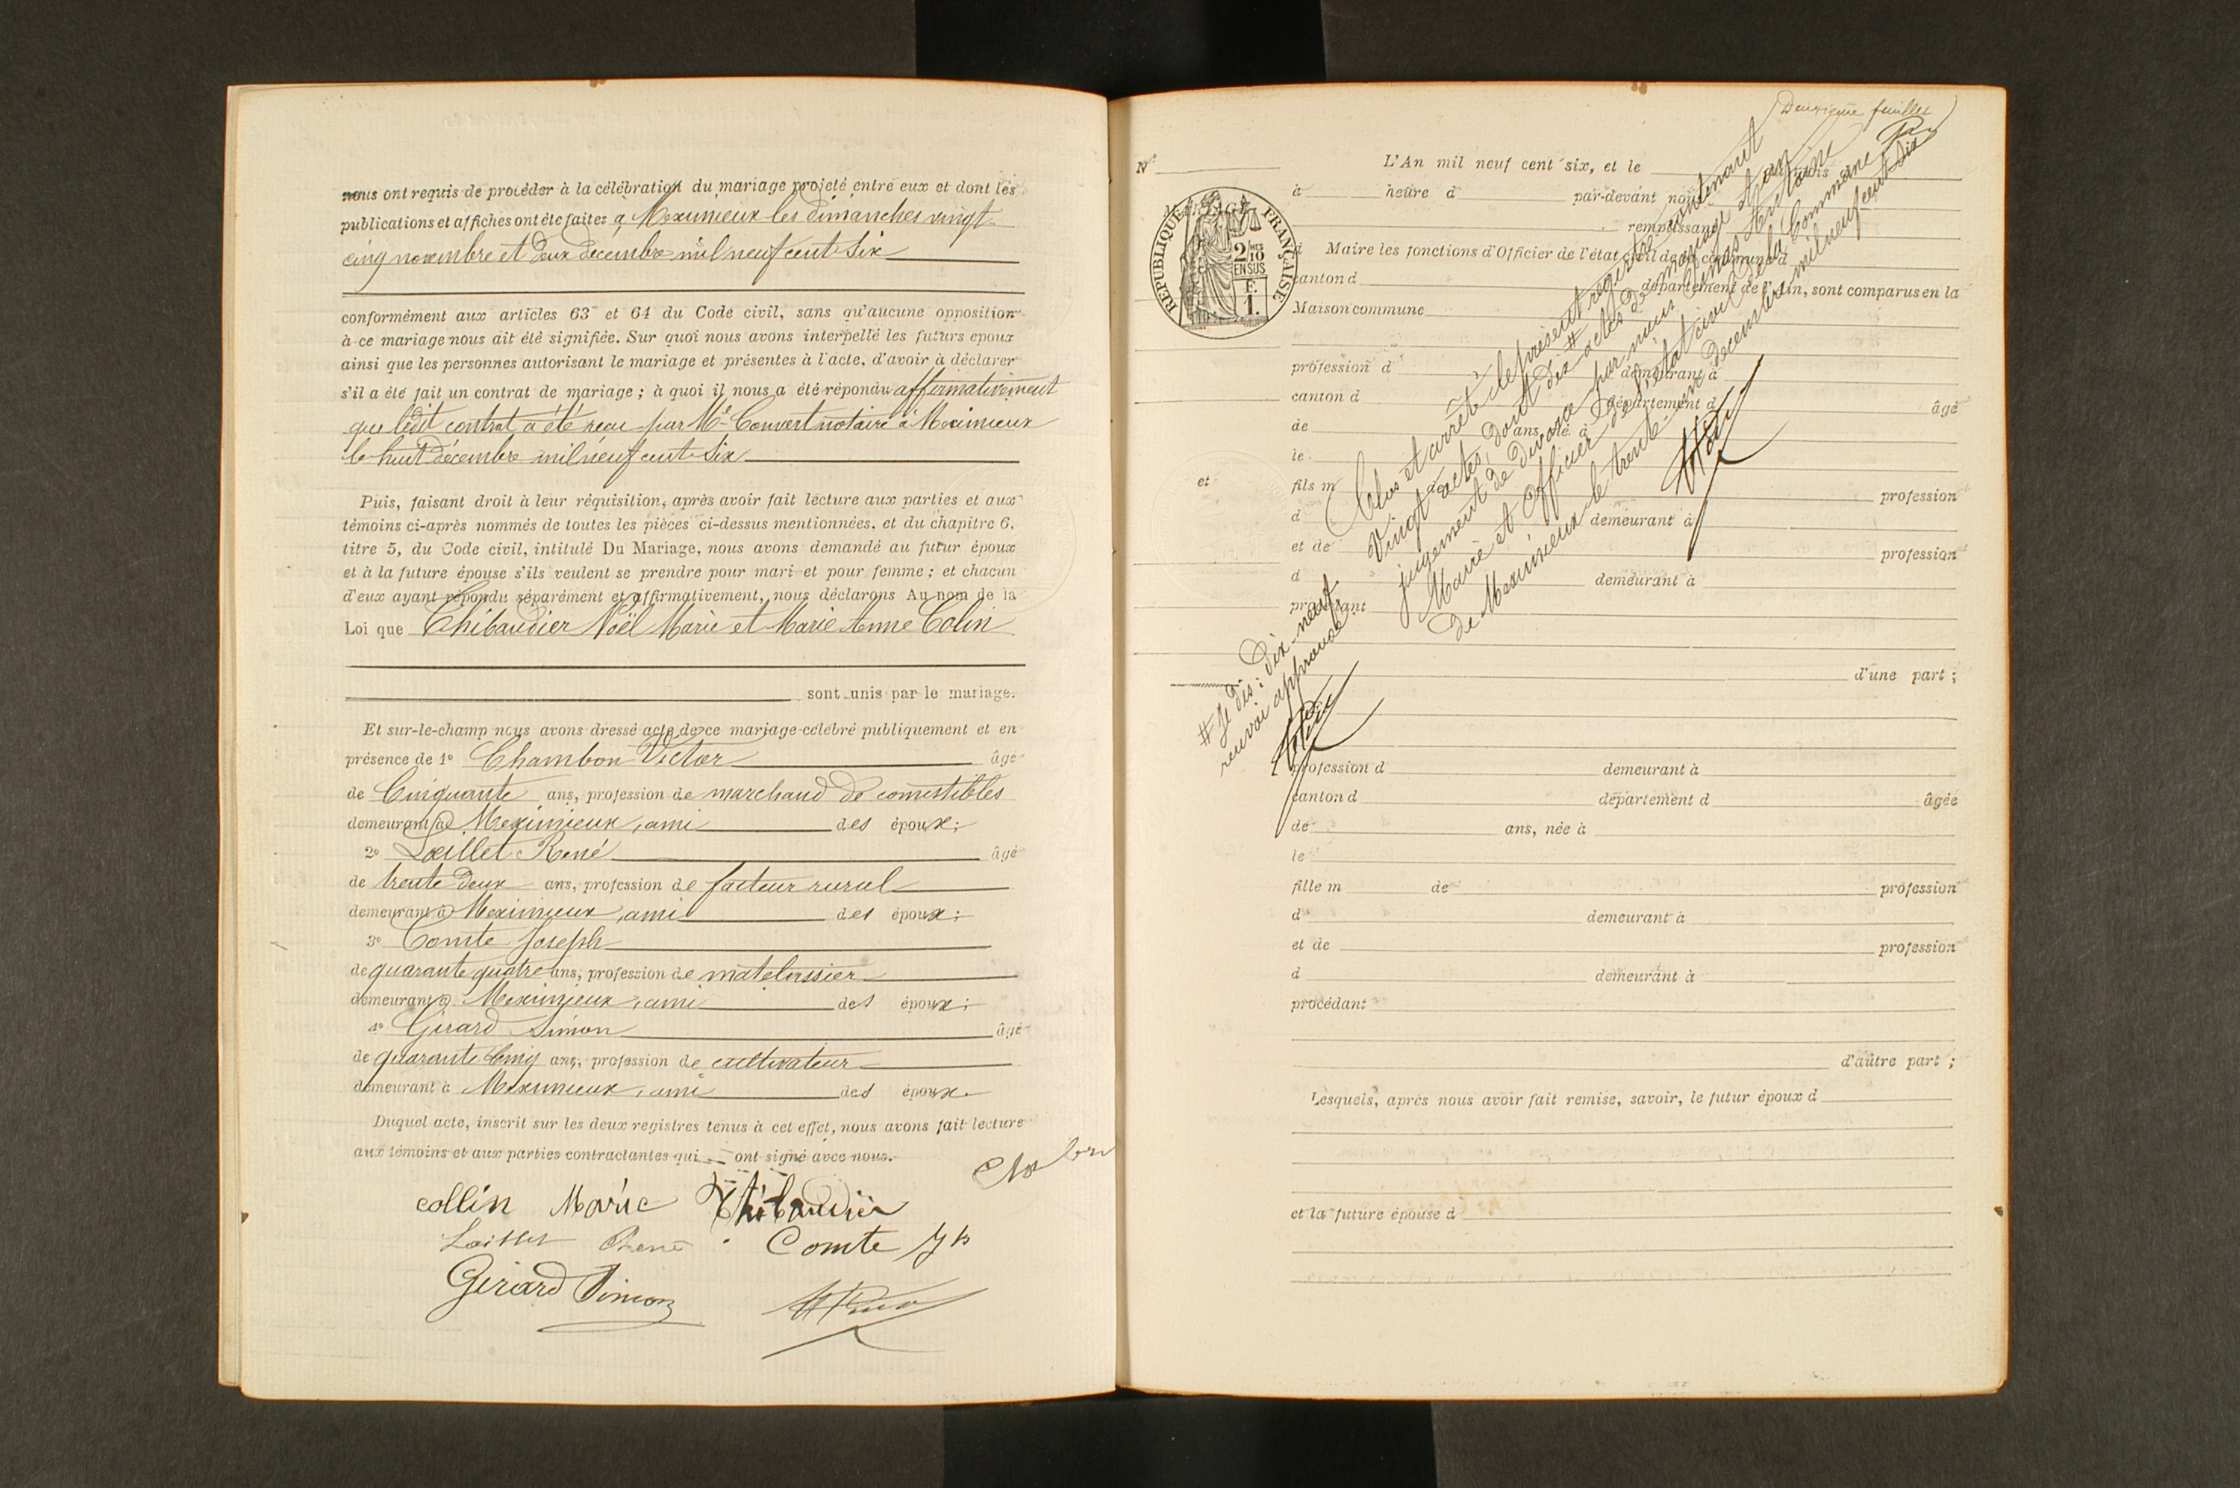 nous ont requis de procéder à la célébration du mariage projeté entre eux et dont les
publications et affiches ont été faites à Meximieux les dimanches vingt
cinq novembre et deux décembre mil neuf cent six
conformément aux articles 63 et 64 du Code civil, sans qu'aucune opposition
à ce mariage nous ait été signifiée. Sur quoi nous avons interpellé les futurs epoux
ainsi que les personnes autorisant le mariage et présentes à l'acte, d'avoir à déclarer
s'il a été fait un contrat de mariage ; à quoi il nous a été répondu affirmativement
que ledit contrat a été reçu par Me Convert notaire à Meximieux
le huit décembre mil neuf cent six
Puis, faisant droit à leur réquisition, après avoir fait lecture aux parties et aux
témoins ci-après nommés de toutes les pièces ci-dessus mentionnées, et du chapitre 6,
titre 5, du Code civil, intitulé Du Mariage, nous avons demandé au futur époux
et à la future épouse s'ils veulent se prendre pour mari et pour femme ; et chacun
d'eux ayant répondu séparément et affirmativement, nous déclarons Au nom de la
Loi que Thibaudier Noël Marie et Marie Anne Colin
sont unis par le mariage.
Et sur-le-champ nous avons dressé acte de ce mariage célébré publiquement et en
présence de 1° Chambon Victor âgé
de Cinquante ans, profession de marchand de comestibles
demeurant à Meximieux, ami des époux ;
2° Laillet René âgé
de trente deux ans, profession de facteur rural
demeurant à Meximieux, ami des époux ;
3° Comte Joseph
de quarante quatre ans, profession de matelassier
demeurant à Meximieux, ami des époux ;
4° Girard Simon âgé
de quarante cinq ans, profession de cultivateur
demeurant à Meximieux, ami des époux.
Duquel acte, inscrit sur les deux registres tenus à cet effet, nous avons fait lecture
aux témoins et aux parties contractantes qui ont signé avec nous.
collin Marie Thibaudier
Laillet René Comte Jh
Girard Simon
Deuxième feuillet
N°
L'An mil neuf cent six, et le
à heure d par-devant nous
remplissant
d Maire les fonctions d'Officier de l'état civil de la commune d
canton d département de l'Ain, sont comparus en la
Maison commune
RÉPUBLIQUE FRANÇAISE
2/10 EN SUS
F. 1.
profession d demeurant à
canton d département d âgé
de ans, né à
le
et
fils m de profession
d demeurant à
et de profession
d demeurant à
procédant
d'une part ;
Clos et arrêté le présent registre contenant
Vingt actes, dont dix # actes de mariage et un
jugement de divorce par nous
Maire et Officier de l'état civil de la Commune
de Meximieux le trente un décembre mil neuf cent six
# Je dis : dix-neuf
renvoi approuvé
profession d demeurant à
canton d département d âgée
de ans, née à
le
fille m de profession
d demeurant à
et de profession
d demeurant à
procédant
d'autre part ;
Lesquels, après nous avoir fait remise, savoir, le futur époux d
et la future épouse d